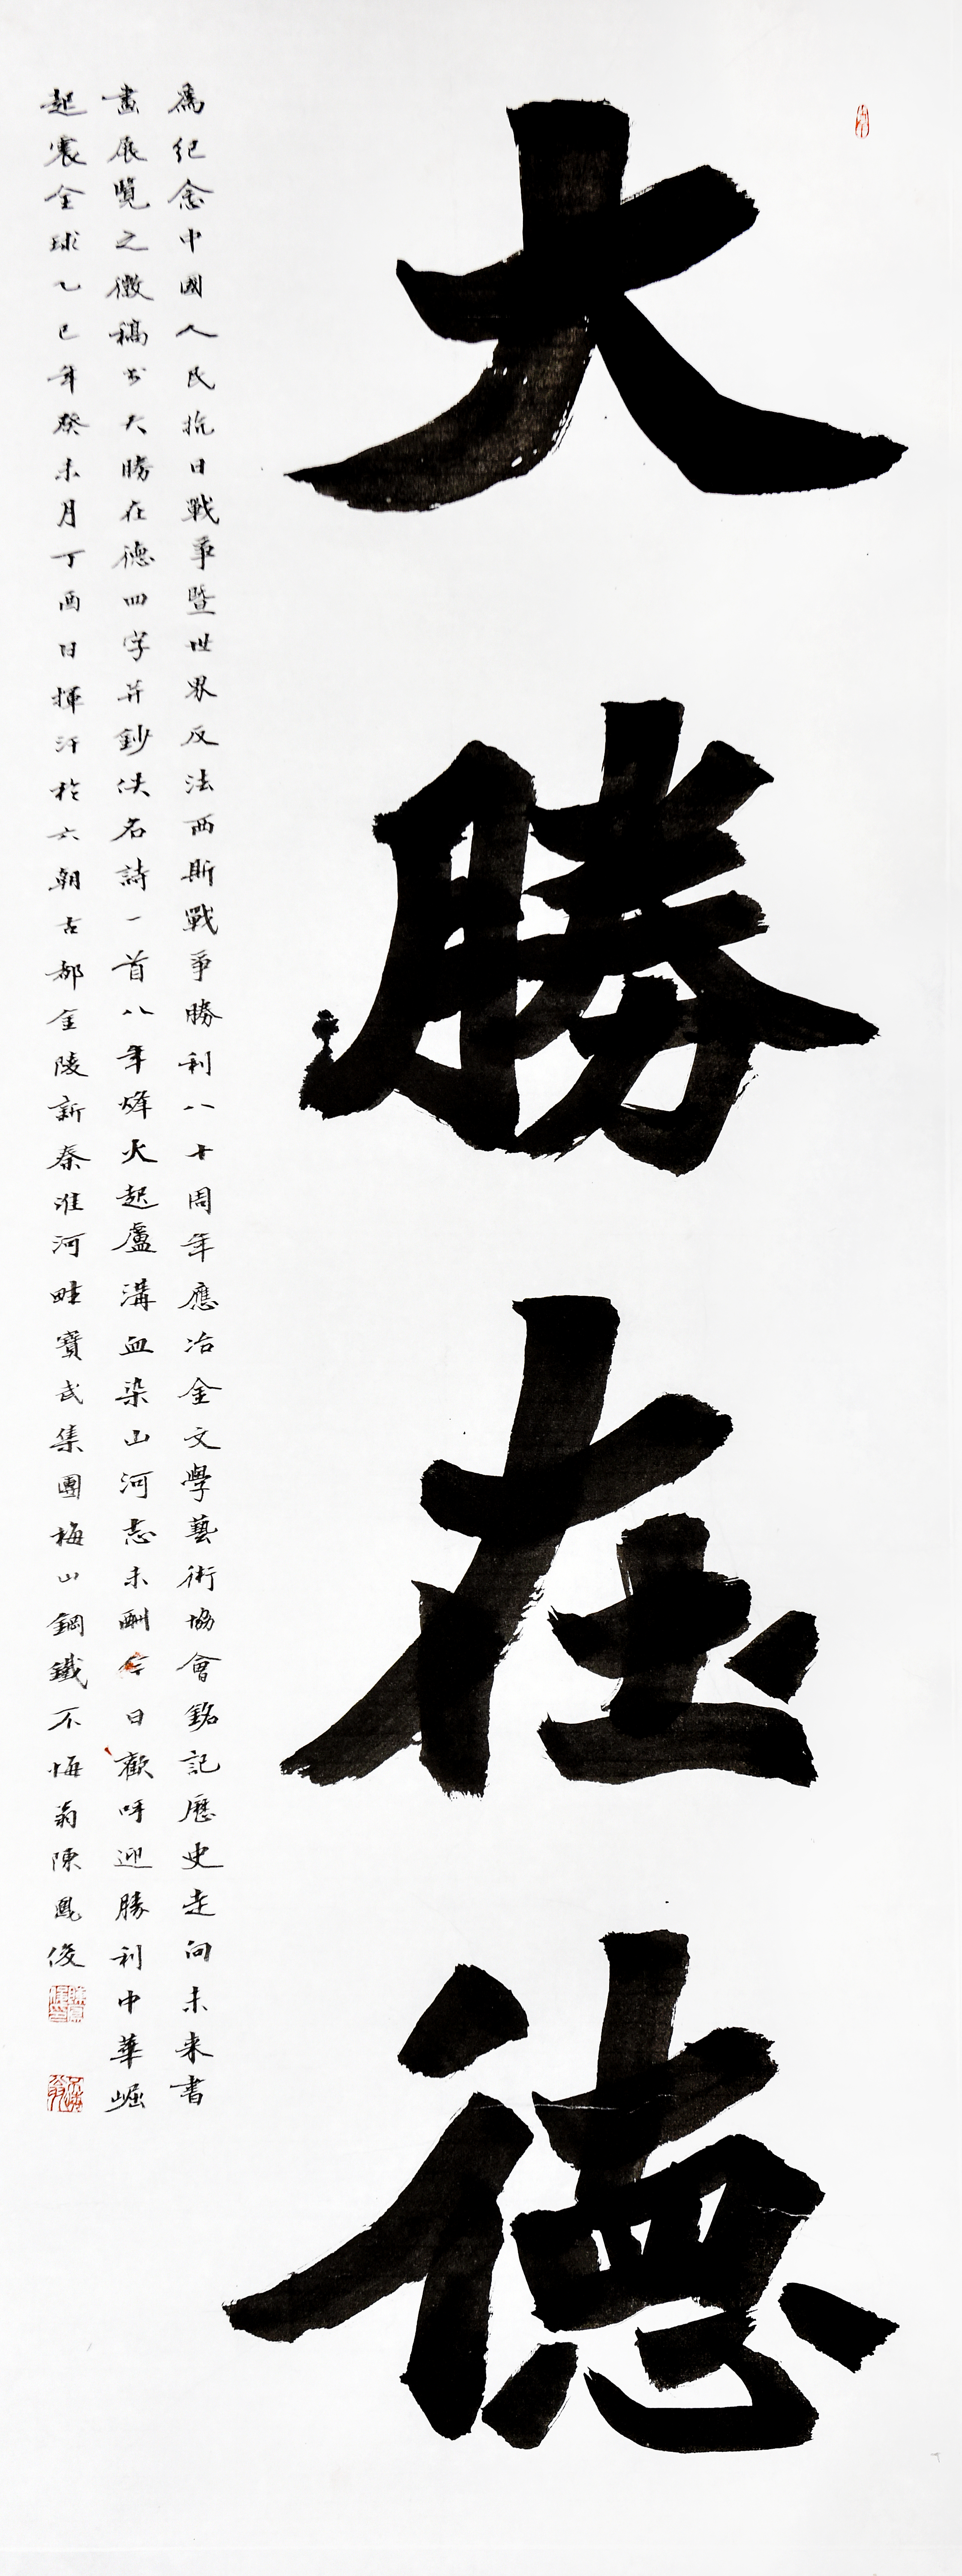 大勝在德
為紀念中國人民抗日戰爭暨世界反法西斯戰爭勝利八十周年應冶金文學藝術協會銘記歷史走向未来書
畫展覽之徵稿书大勝在德四字并鈔佚名詩一首八年烽火起盧溝血染山河志未酬今日歡呼迎勝利中華崛
起震全球乙巳年癸未月丁酉日揮汗於六朝古都金陵新秦淮河畔寶武集團梅山鋼鐵不悔翁陳鳳俊